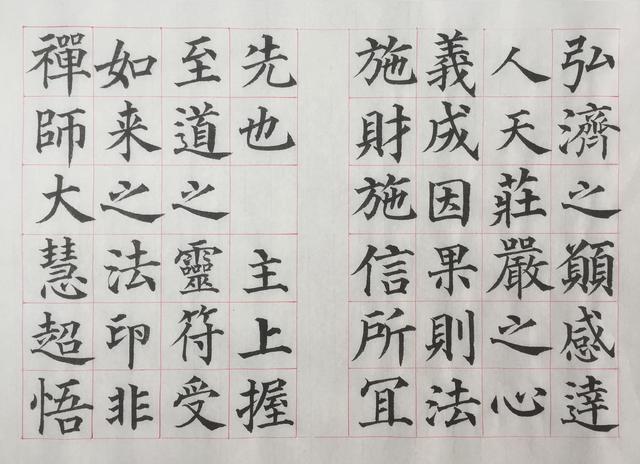 弘濟之願感達
人天莊嚴之心
義成因果則法
施財施信所冝
先也　主上握
至道之靈符受
如来之法印非
禪師大慧超悟